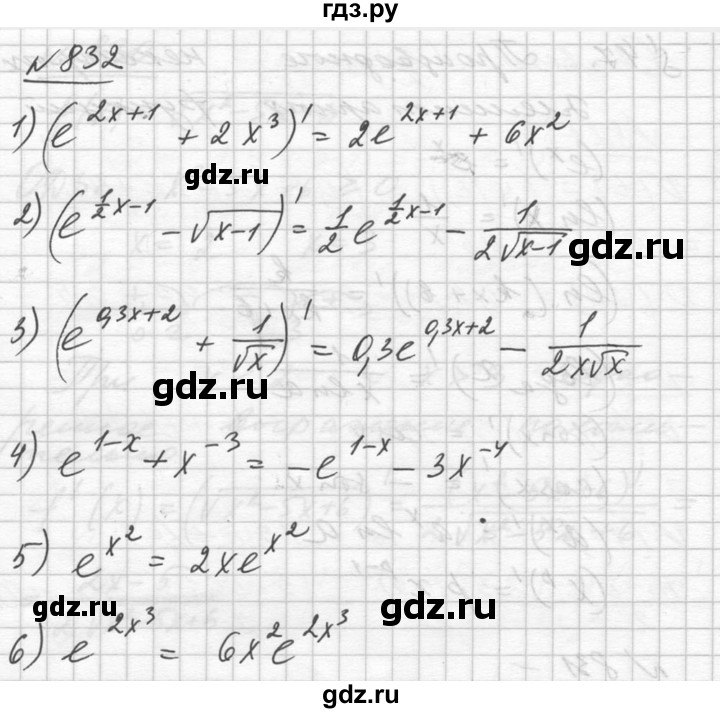 гдз.ру
№832
1) (e^{2x+1} + 2x^3)' = 2e^{2x+1} + 6x^2
gdz.ru
2) (e^{\frac{1}{2}x-1} - \sqrt{x-1})' = \frac{1}{2}e^{\frac{1}{2}x-1} - \frac{1}{2\sqrt{x-1}}
gdz.ru
3) (e^{0,3x+2} + \frac{1}{\sqrt{x}})' = 0,3e^{0,3x+2} - \frac{1}{2x\sqrt{x}}
gdz.ru
4) e^{1-x} + x^{-3} = -e^{1-x} - 3x^{-4}
5) e^{x^2} = 2xe^{x^2}
gdz.ru gdz.ru
6) e^{2x^3} = 6x^2e^{2x^3}
gdz.ru